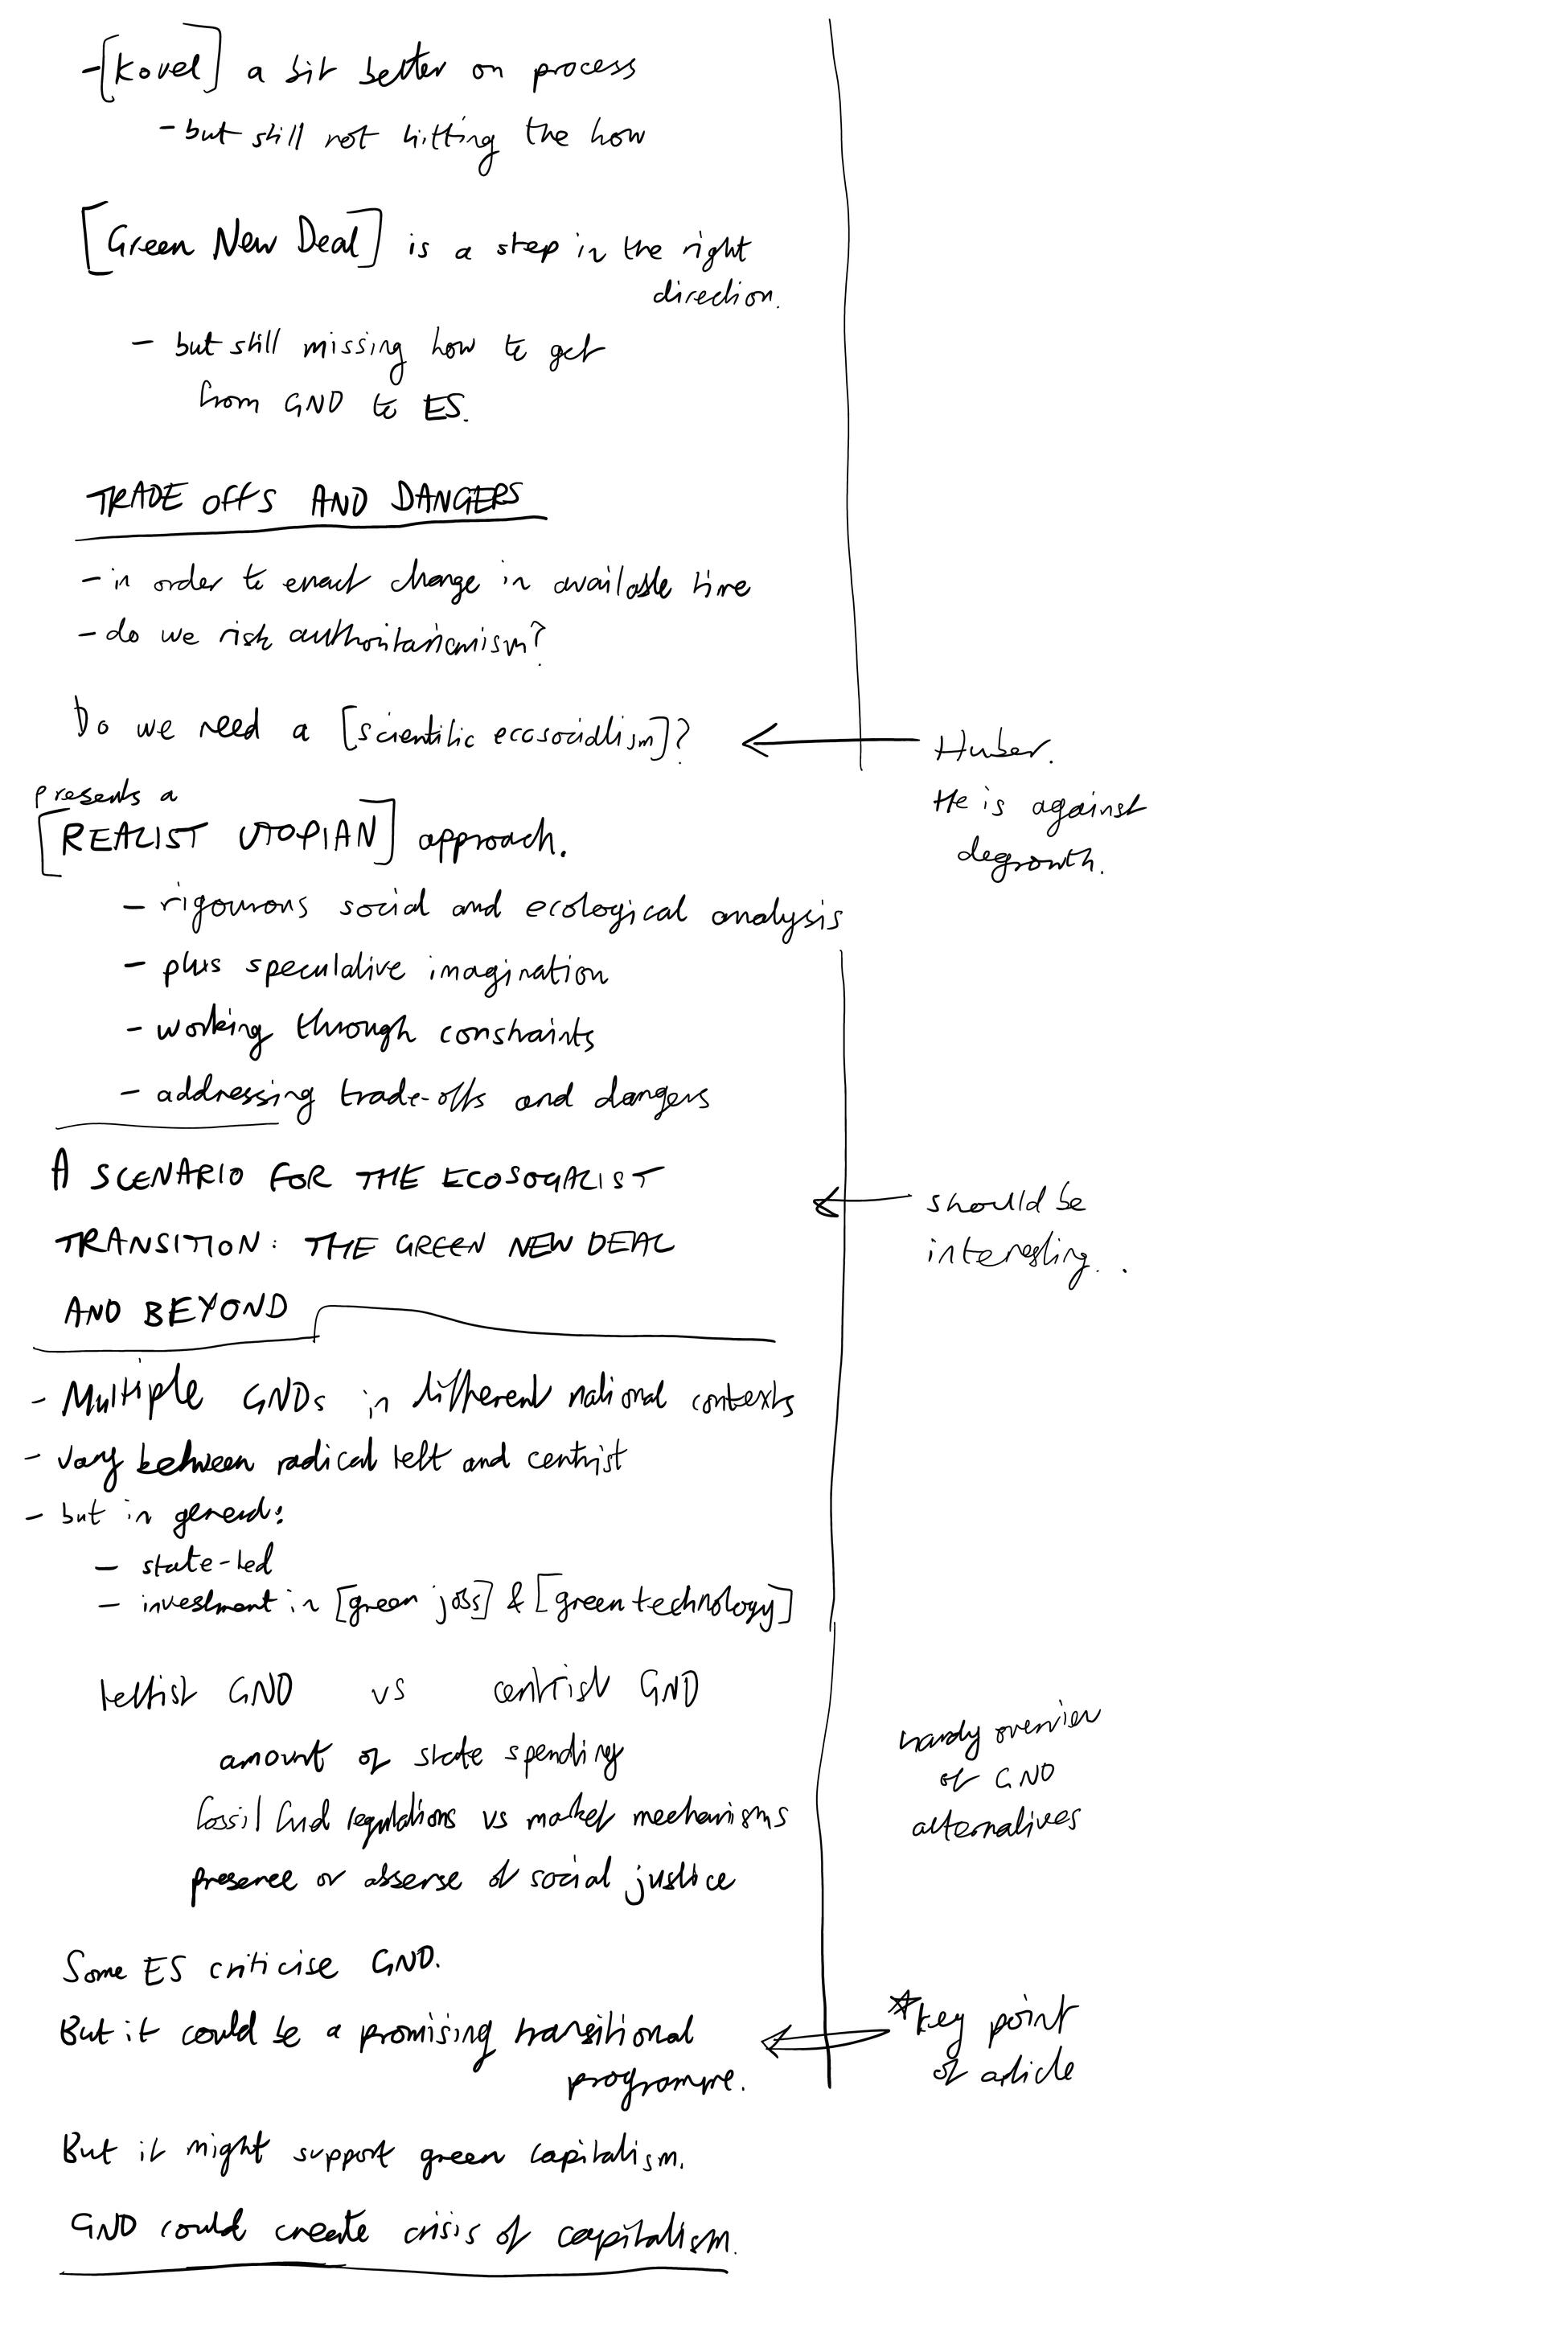 -[Kovel] a bit better on process
- but still not hitting the how
[Green New Deal] is a step in the right
direction.
- but still missing how to get
from GND to ES.
TRADE OFFS AND DANGERS
- in order to enact change in available time
- do we risk authoritarianism?
Do we need a [scientific ecosocialism]?
Huber.
He is against
degrowth.
presents a
[REALIST UTOPIAN] approach.
- rigourous social and ecological analysis
- plus speculative imagination
- working through constraints
- addressing trade-offs and dangers
A SCENARIO FOR THE ECOSOCIALIST
TRANSITION: THE GREEN NEW DEAL
AND BEYOND
should be
interesting..
- Multiple GNDs in different national contexts
- vary between radical left and centrist
- but in general:
- state-led
- investment in [green jobs] & [green technology]
leftist GND vs centrist GND
amount of state spending
fossil fuel regulations vs market mechanisms
presence or absense of social justice
handy overview
of GND
alternatives
Some ES criticise GND.
But it could be a promising transitional
programme.
*key point
of article
But it might support green capitalism.
GND could create crisis of capitalism.